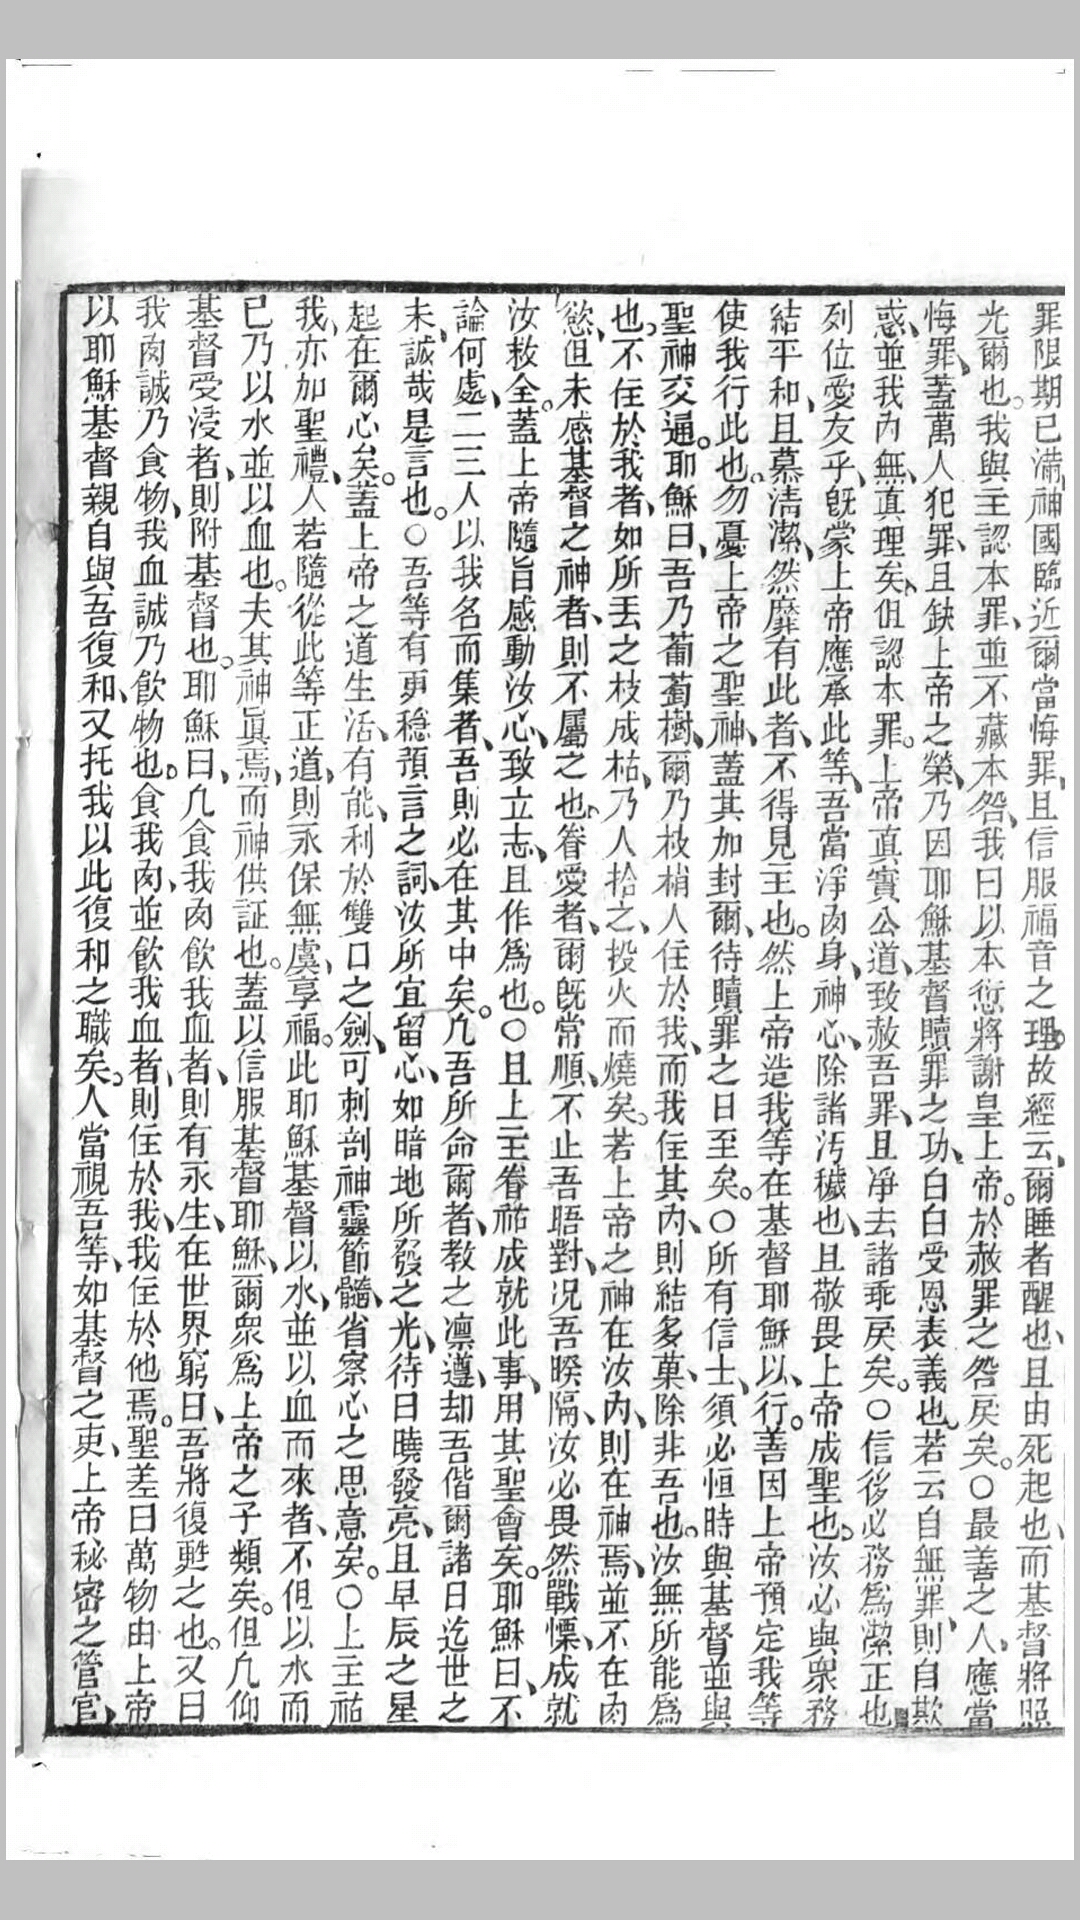 罪限期已滿、神國臨近、爾當悔罪、且信服福音之理、故經云、爾睡者醒也、且由死起也、而基督將照
光爾也。我與主認本罪、並不藏本咎、我曰以本愆將謝皇上帝。於赦罪之咎戾矣。〇最善之人、應當
悔罪、蓋萬人犯罪、且缺上帝之榮、乃因耶穌基督贖罪之功、白白受恩表義也。若云自無罪、則自欺
惑、並我內無真理矣、但認本罪。上帝真實公道、致赦吾罪、且凈去諸乖戾矣。〇信後必務為潔正也
列位愛友乎、既蒙上帝應承此等、吾當淨肉身、神心、除諸污穢也、且敬畏上帝成聖也。汝必與眾務
結平和、且慕清潔、然靡有此者、不得見主也。然上帝造我等在基督耶穌、以行善、因上帝預定我等
使我行此也。勿憂上帝之聖神、蓋其加封爾、待贖罪之日至矣。〇所有信士、須必恒時與基督並與
聖神交通。耶穌曰、吾乃葡萄樹、爾乃枝梢、人住於我、而我住其內、則結多菓、除非吾也。汝無所能為
也。不住於我者、如所丟之枝成枯、乃人拾之、投火而燒矣。若上帝之神在汝內、則在神焉、並不在肉
慾、但未感基督之神者、則不屬之也。眷愛者、爾既常順、不止吾晤對、況吾暌隔、汝必畏然戰慄、成就
汝救全。蓋上帝隨旨感動汝心、致立志、且作為也。〇且上主眷祐成就此事、用其聖會矣。耶穌曰、不
論何處、二三人以我名而集者、吾則必在其中矣。凡吾所命爾者、教之凜遵、却吾偕爾諸日迄世之
未、誠哉是言也。〇吾等有更穩預言之詞、汝所宜留心、如暗地所發之光、待日曉發亮、且早辰之星
起在爾心矣。蓋上帝之道生活、有能、利於雙口之劍、可刺剖神靈節髓、省察心之思意矣。〇上主祐
我、亦加聖禮、人若隨從此等正道、則永保無虞、享福。此耶穌基督以水、並以血而來者、不但以水而
已、乃以水並以血也。夫其神眞焉、而神供証也。蓋以信服基督耶穌、爾眾為上帝之子類矣。但凡仰
基督受浸者、則附基督也。耶穌曰、凡食我肉飲我血者、則有永生、在世界窮日、吾將復甦之也。又曰
我肉誠乃食物、我血誠乃飲物也。食我肉、並飲我血者、則住於我、我住於他焉。聖差曰、萬物由上帝
以耶穌基督親自與吾復和、又托我以此復和之職矣。人當視吾等、如基督之吏、上帝秘密之管官、